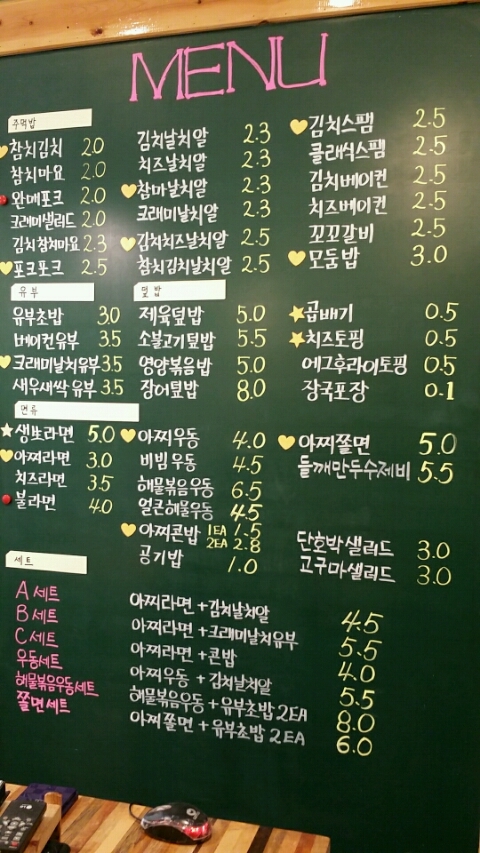 MENU
주먹밥
참치김치 2.0
참치마요 2.0
완매포크 2.0
크래미샐러드 2.0
김치참치마요 2.3
포크포크 2.5
김치날치알 2.3
치즈날치알 2.3
참마날치알 2.3
크래미날치알 2.3
김치치즈날치알 2.5
참치김치날치알 2.5
김치스팸 2.5
클래식스팸 2.5
김치베이컨 2.5
치즈베이컨 2.5
꼬꼬갈비 2.5
모둠밥 3.0
유부
유부초밥 3.0
베이컨유부 3.5
크래미날치유부 3.5
새우새싹유부 3.5
덮밥
제육덮밥 5.0
소불고기덮밥 5.5
영양볶음밥 5.0
장어덮밥 8.0
곱배기 0.5
치즈토핑 0.5
에그후라이토핑 0.5
장국포장 0.1
면류
생生라면 5.0
아찌라면 3.0
치즈라면 3.5
불라면 4.0
아찌우동 4.0
비빔우동 4.5
해물볶음우동 6.5
얼큰해물우동 4.5
아찌콘밥 1EA 1.5
2EA 2.8
공기밥 1.0
아찌쫄면 5.0
들깨만두수제비 5.5
단호박샐러드 3.0
고구마샐러드 3.0
세트
A세트 아찌라면+김치날치알 4.5
B세트 아찌라면+크래미날치유부 5.5
C세트 아찌라면+콘밥 4.0
우동세트 아찌우동+김치날치알 5.5
해물볶음우동세트 해물볶음우동+유부초밥 2EA 8.0
쫄면세트 아찌쫄면+유부초밥 2EA 6.0